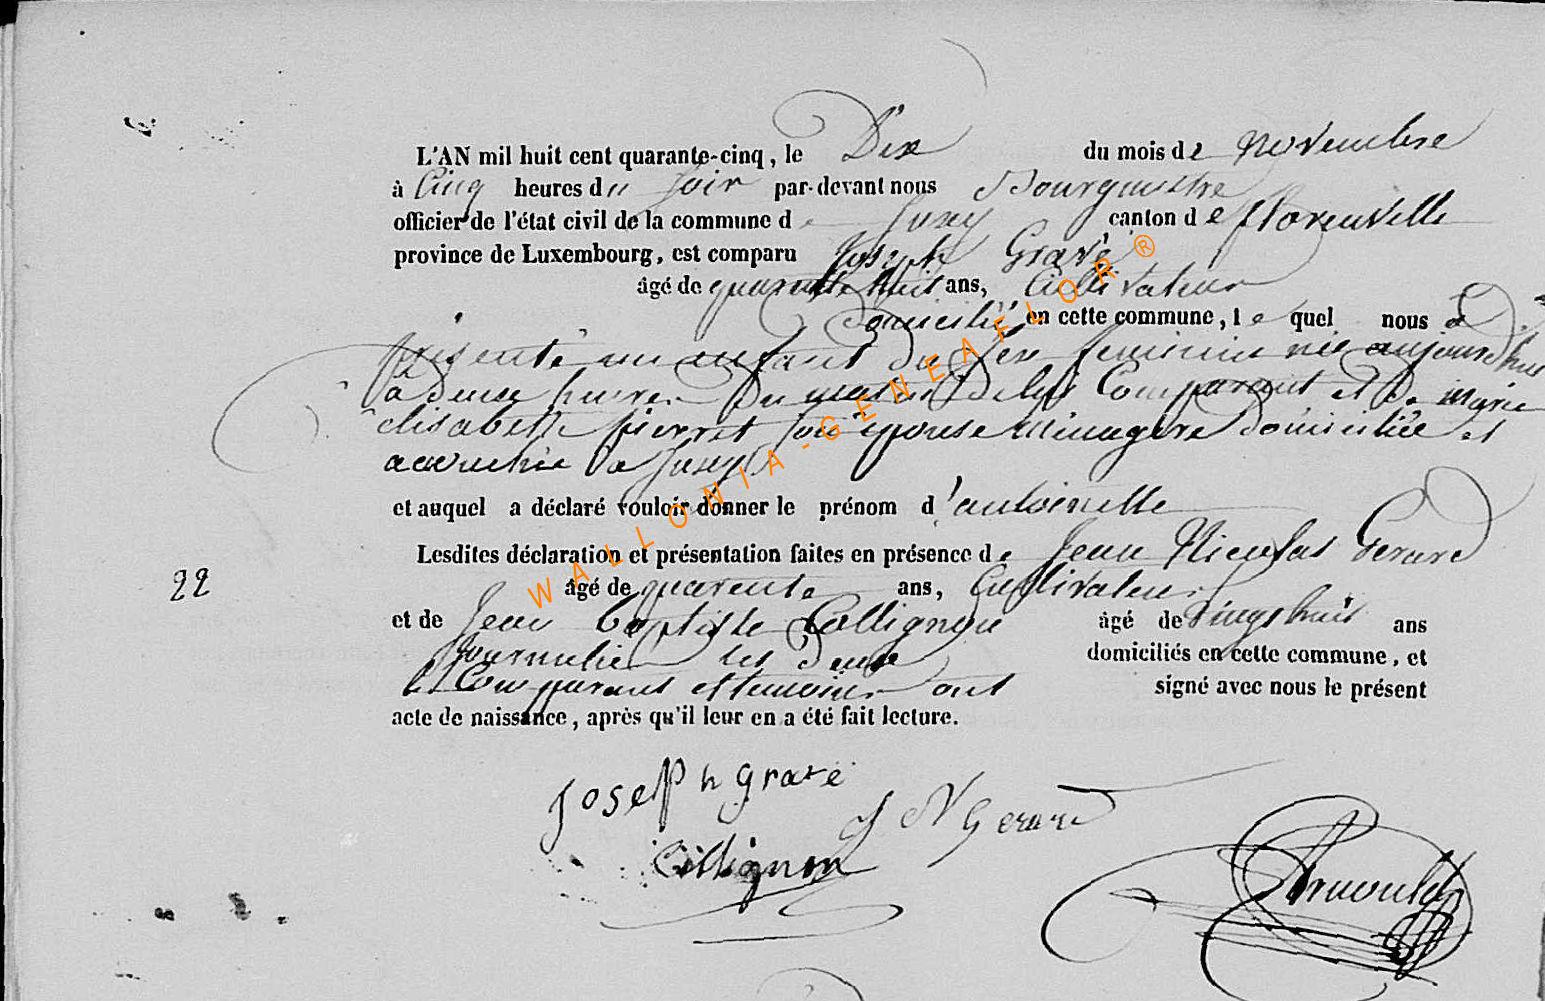 L'AN mil huit cent quarante-cinq, le Dix du mois de novembre
à Cinq heures du soir par-devant nous Bourgmestre
officier de l'état civil de la commune de Jusey canton de florenville
province de Luxembourg, est comparu Joseph Gravé
âgé de quarante huit ans, Cultivateur
domicilié en cette commune, lequel nous a
présenté un enfant du sexe feminin née aujourdhui
a deux heures du matin de lui Comparant et de marie
elisabeth pierret son épouse Ménagère domiciliée et
accouchée a Jusey
et auquel a déclaré vouloir donner le prénom d'antoinette
Lesdites déclaration et présentation faites en présence de Jean Nicolas Gerard
22
âgé de quarente ans, Cultivateur
et de Jean Baptiste Collignon âgé de vingt huit ans
journalier les deux domiciliés en cette commune, et
le Comparant et temoins ont signé avec nous le présent
acte de naissance, après qu'il leur en a été fait lecture.
Joseph grave
J N Gerard
Collignon
Arnould
WALLONIA-GENEAFLOR®